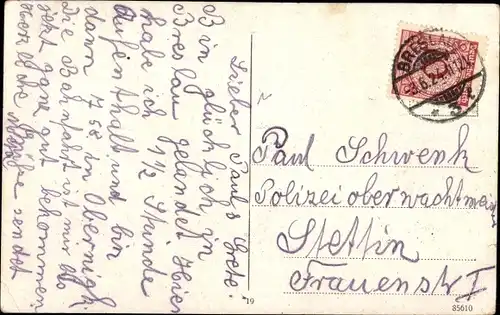 Lieber Paul & Grete.
Bin glücklich in
Breslau gelandet Hier
habe ich 1 1/2 Stunde
Aufenthalt und bin
dann 7 58 in Obernigk.
Die Bahnfahrt ist mir also
jetzt ganz gut bekommen
Herzliche Grüße sendet
BRESLAU
* 3 t
Paul Schwenk
Polizeioberwachtmstr
Stettin
Frauenstr I
19
85610